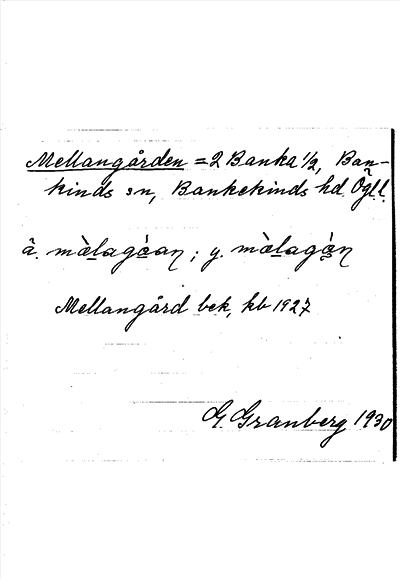 Mellangården = 2 Banka 1/2, Ban-
kinds sn, Bankekinds hd. Ögl.
ä. màlagå̀an; y. màlagå̀n
Mellangård bek, kb 1927
G. Granberg 1930